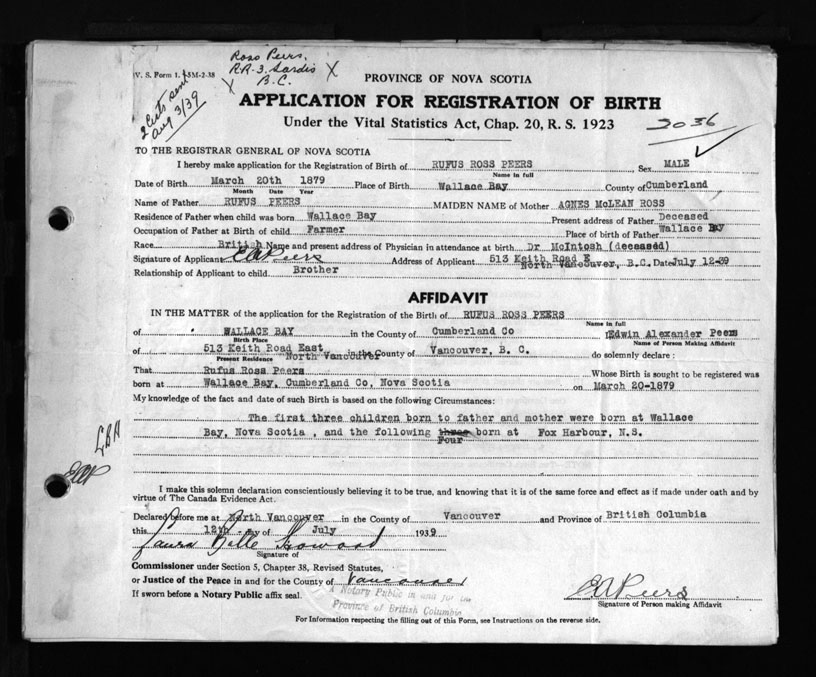 Ross Peers,
R.R.3. Sardis X
X B.C.
V. S. Form 1. 5M-2-38
2 Certs sent
Aug 3/39
PROVINCE OF NOVA SCOTIA
APPLICATION FOR REGISTRATION OF BIRTH
Under the Vital Statistics Act, Chap. 20, R. S. 1923
2036
TO THE REGISTRAR GENERAL OF NOVA SCOTIA
I hereby make application for the Registration of Birth of RUFUS ROSS PEERS Sex MALE
Name in full
Date of Birth March 20th 1879 Place of Birth Wallace Bay County of Cumberland
Month Date Year
Name of Father RUFUS PEERS MAIDEN NAME of Mother AGNES McLEAN ROSS
Residence of Father when child was born Wallace Bay Present address of Father Deceased
Occupation of Father at Birth of child Farmer Place of birth of Father Wallace Bay
Race British Name and present address of Physician in attendance at birth Dr McIntosh (deceased)
Signature of Applicant E A Peers Address of Applicant 513 Keith Road E
North Vancouver, B.C. Date July 12-39
Relationship of Applicant to child Brother
AFFIDAVIT
IN THE MATTER of the application for the Registration of the Birth of RUFUS ROSS PEERS
Name in full
of WALLACE BAY in the County of Cumberland Co I, Edwin Alexander Peers
Birth Place Name of Person Making Affidavit
of 513 Keith Road East North Vancouver in the County of Vancouver, B. C. do solemnly declare :
Present Residence
That Rufus Ross Peers Whose Birth is sought to be registered was
born at Wallace Bay, Cumberland Co, Nova Scotia on March 20-1879
My knowledge of the fact and date of such Birth is based on the following Circumstances:
The first three children born to father and mother were born at Wallace
Bay, Nova Scotia , and the following three born at Fox Harbour, N.S.
Four
LBH
EAP
I make this solemn declaration conscientiously believing it to be true, and knowing that it is of the same force and effect as if made under oath and by
virtue of The Canada Evidence Act.
Declared before me at North Vancouver in the County of Vancouver and Province of British Columbia
this 12th day of July 1939
Laura Belle Howard
Signature of
Commissioner under Section 5, Chapter 38, Revised Statutes,
or Justice of the Peace in and for the County of Vancouver
If sworn before a Notary Public affix seal.
A Notary Public in and for the
Province of British Columbia
E A Peers
Signature of Person making Affidavit
For Information respecting the filling out of this Form, see Instructions on the reverse side.